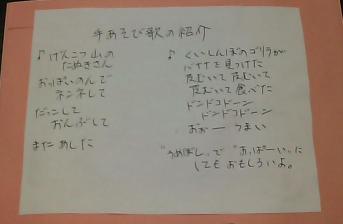 手あそび歌の紹介
♪ げんこつ山の
たぬきさん
おっぱいのんで
ネンネして
だっこして
おんぶして
またあした
♪ くいしんぼのゴリラが
バナナを見つけた
皮むいて 皮むいて
皮むいて 食べた
ドンドコドーン
ドンドコドーン
おおー うまい
"うめぼし"で "あっぱーい"に
してもおもしろいよ。